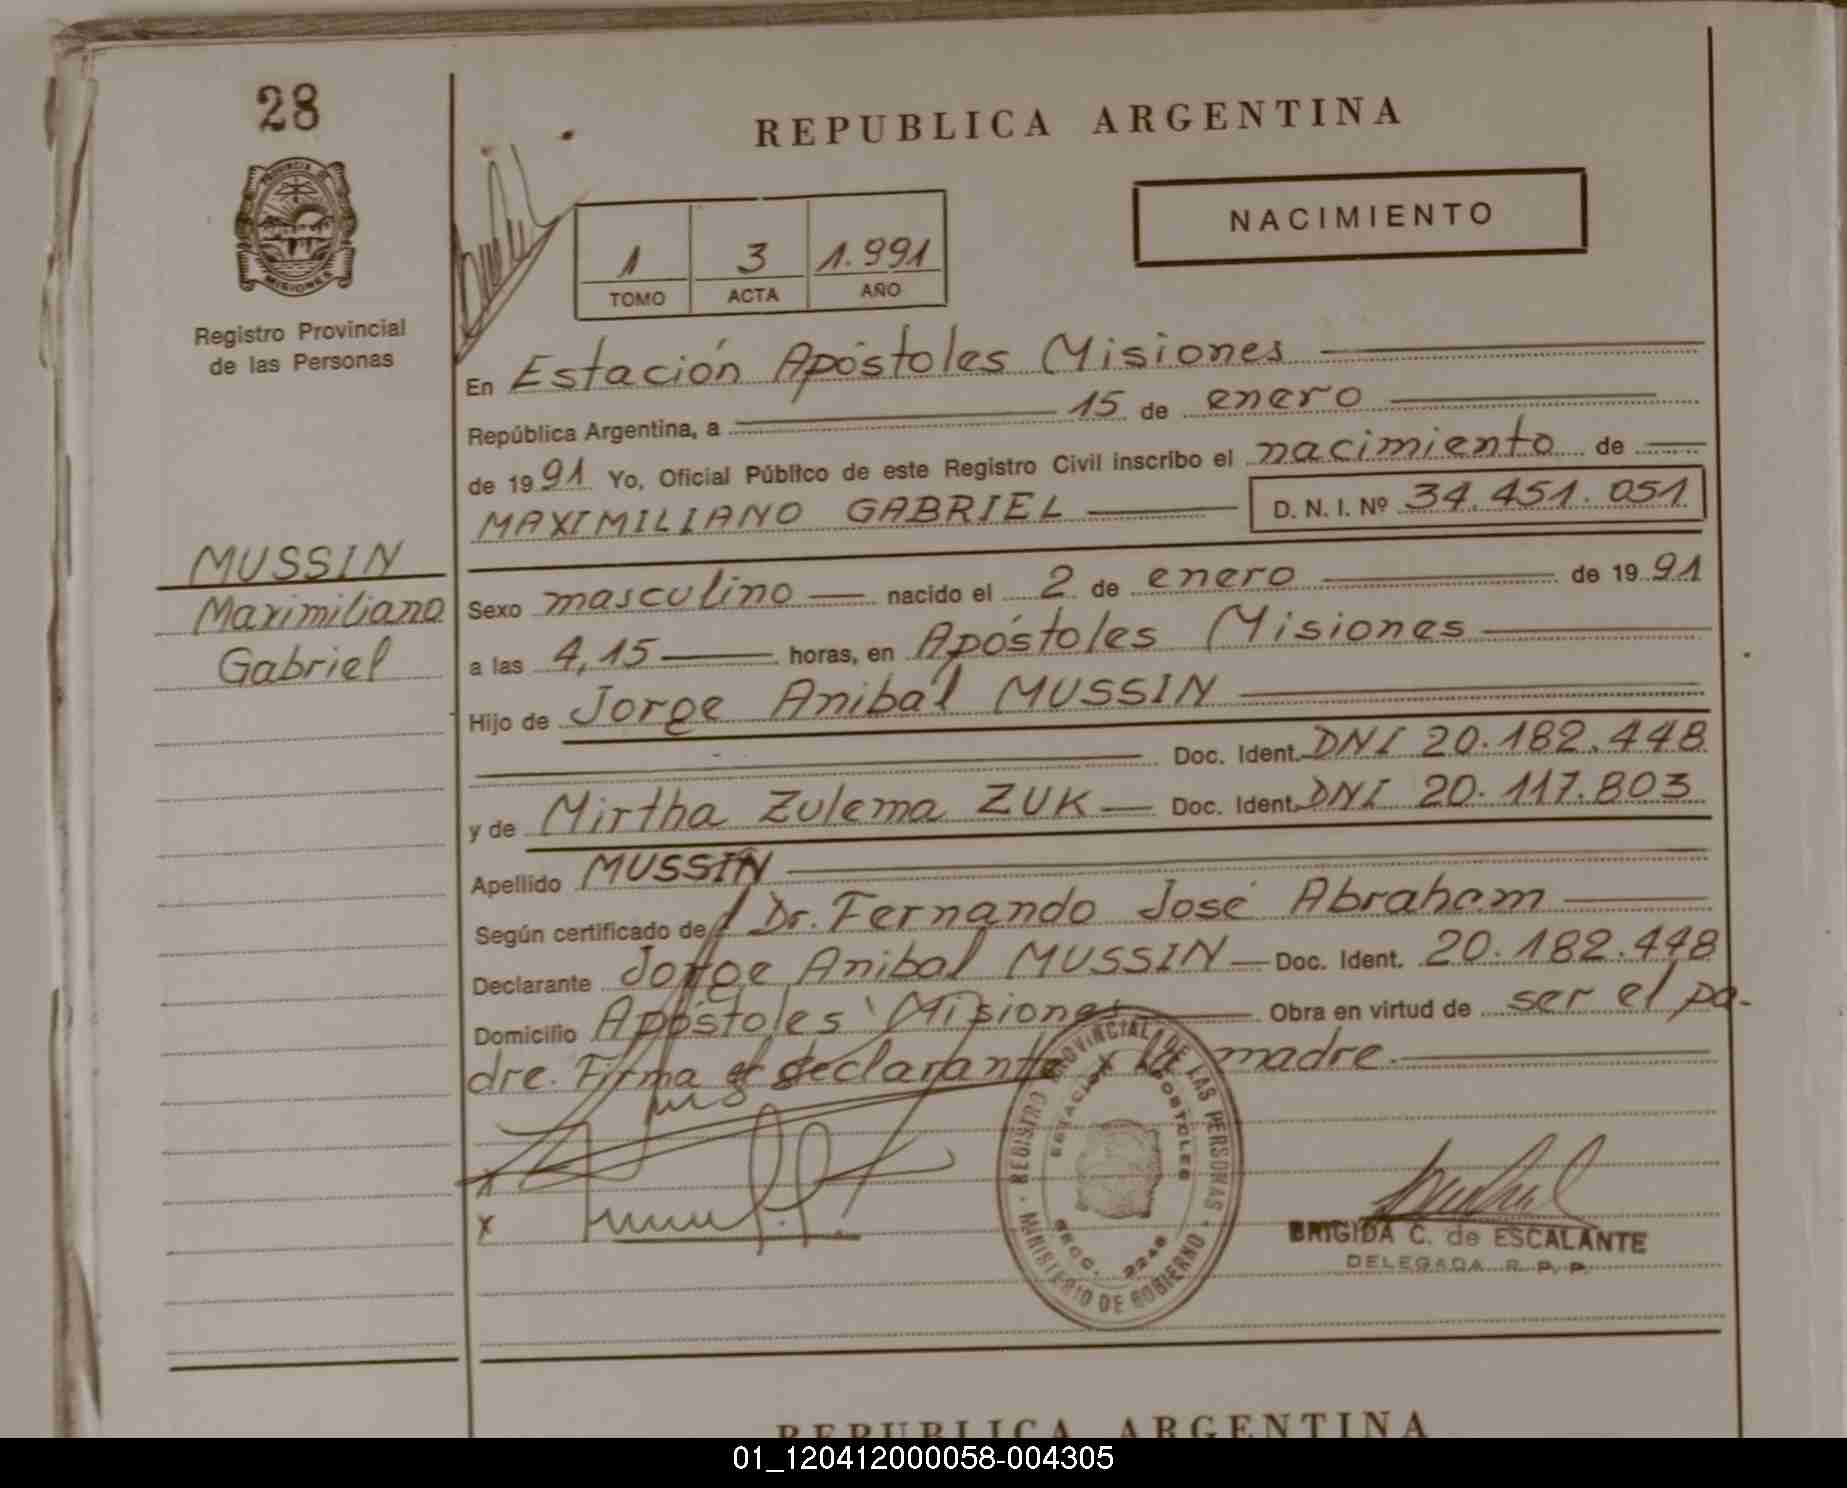 28
PROVINCIA DE
MISIONES
Registro Provincial
de las Personas
MUSSIN
Maximiliano
Gabriel
REPUBLICA ARGENTINA
NACIMIENTO
1 3 1.991
TOMO ACTA AÑO
En Estación Apóstoles Misiones
República Argentina, a 15 de enero
de 1991 Yo, Oficial Público de este Registro Civil inscribo el nacimiento de
MAXIMILIANO GABRIEL D. N. I. Nº 34.451.051
Sexo masculino nacido el 2 de enero de 1991
a las 4,15 horas, en Apóstoles Misiones
Hijo de Jorge Anibal MUSSIN
Doc. Ident. DNI 20.182.448
y de Mirtha Zulema ZUK Doc. Ident. DNI 20.117.803
Apellido MUSSIN
Según certificado de Dr. Fernando José Abraham
Declarante Jorge Anibal MUSSIN Doc. Ident. 20.182.448
Domicilio Apóstoles Misiones Obra en virtud de ser el pa-
dre. Firma el declarante y la madre.
x
x
REGISTRO PROVINCIAL DE LAS PERSONAS
MINISTERIO DE GOBIERNO
ESTACION APOSTOLES
SECC. 2248
BRIGIDA C. de ESCALANTE
DELEGADA R. P. P.
REPUBLICA ARGENTINA
01_120412000058-004305